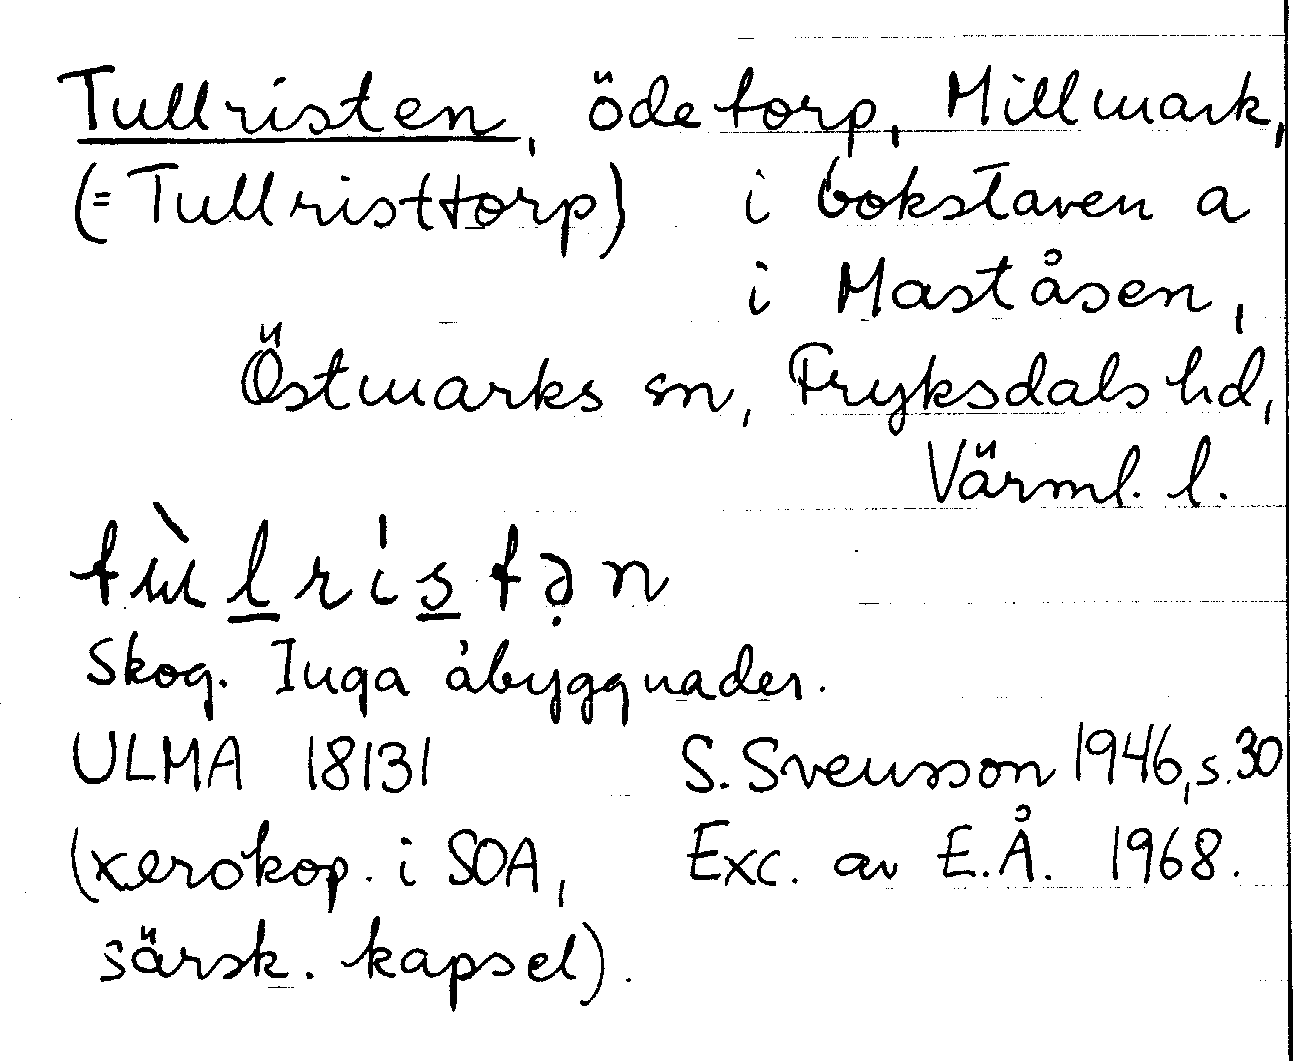 Tullristen, ödetorp, Millmark,
(= Tullristtorp) i bokstaven a
i Maståsen,
Östmarks sn, Fryksdals hd,
Värml. l.
tùlrístən
Skog. Inga åbyggnader.
ULMA 18131 S. Svensson 1946, s. 30
(xerokop. i SOA, Exc. av E.Å. 1968.
särsk. kapsel).